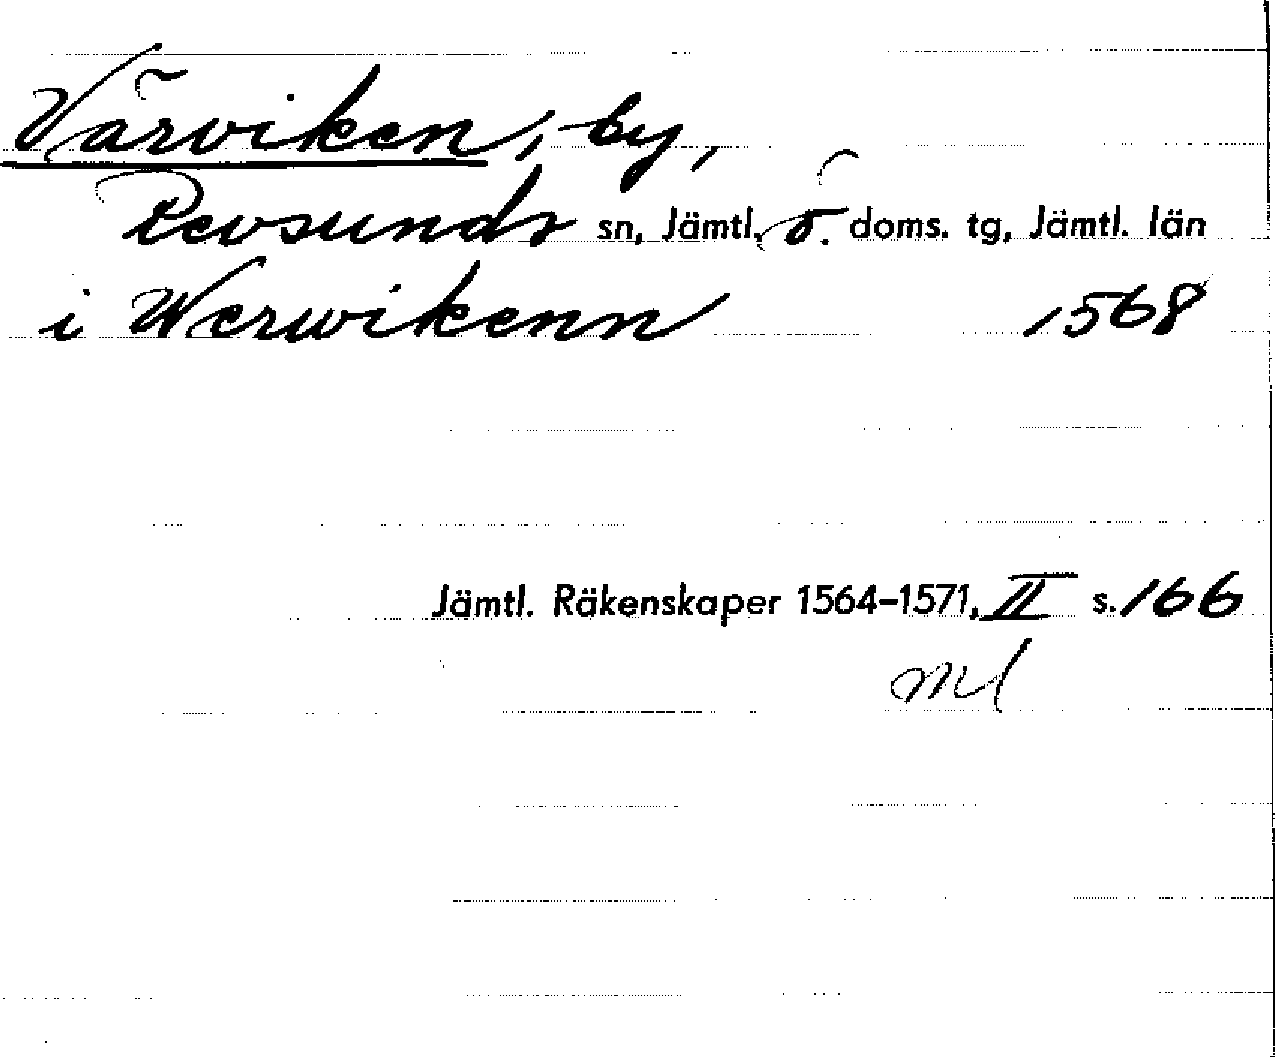 Värviken, by,
Revsunds sn, Jämtl. ö. doms. tg, Jämtl. län
i Werwikenn 1568
Jämtl. Räkenskaper 1564-1571, II s. 166